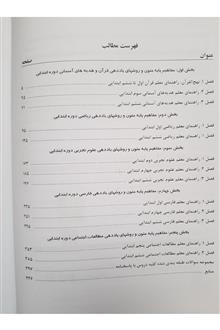 فهرست مطالب
عنوان
صفحه
بخش اول: مفاهیم پایه متون و روشهای یاددهی قرآن و هدیه های آسمانی دوره ابتدایی
فصل ۱ راهنمای معلم قرآن اول تا ششم ابتدایی
فصل ۲ راهنمای معلم هدیه‌های آسمانی سوم ابتدایی
فصل ۳ راهنمای معلم هدیه‌های آسمانی ششم ابتدایی
بخش دوم: مفاهیم پایه متون و روشهای یاددهی ریاضی دوره ابتدایی
فصل ۱ راهنمای معلم ریاضی اول ابتدایی
فصل ۲ راهنمای معلم ریاضی ششم ابتدایی
بخش سوم: مفاهیم پایه متون و روشهای یاددهی علوم تجربی دوره ابتدایی
فصل ۱ راهنمای معلم علوم تجربی دوم ابتدایی
فصل ۲ راهنمای معلم علوم تجربی چهارم ابتدایی
فصل ۳ راهنمای معلم علوم تجربی ششم ابتدایی
بخش چهارم: مفاهیم پایه متون و روشهای یاددهی فارسی دوره ابتدایی
فصل ۱ راهنمای معلم فارسی اول ابتدایی
فصل ۲ راهنمای معلم فارسی چهارم ابتدایی
فصل ۳ راهنمای معلم فارسی ششم ابتدایی
بخش پنجم: مفاهیم پایه متون و روشهای یاددهی مطالعات اجتماعی دوره ابتدایی
فصل ۱ راهنمای معلم مطالعات اجتماعی پنجم ابتدایی
فصل ۲ راهنمای معلم مطالعات اجتماعی ششم ابتدایی
مجموعه سوالات طبقه بندی شده کلیه دروس با پاسخنامه
منابع